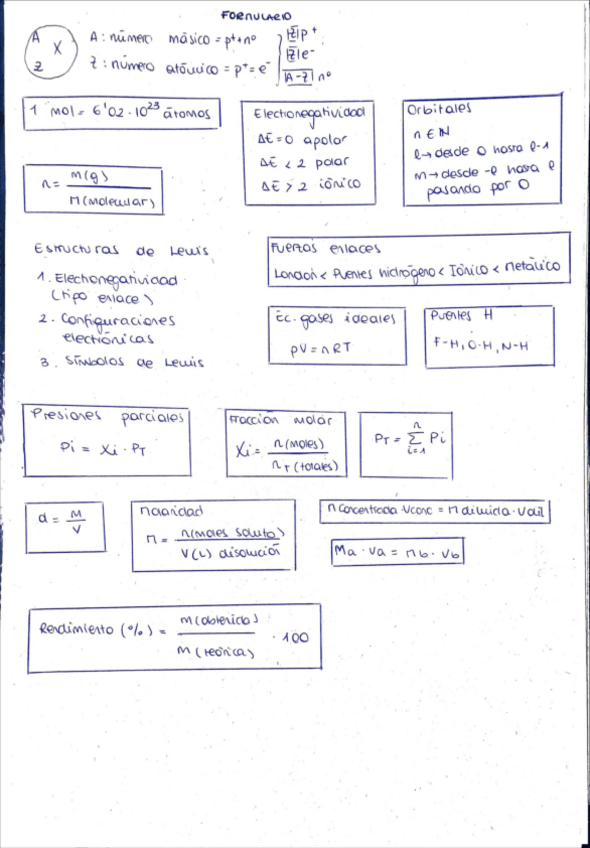 FORMULARIO
A X A: número másico = p⁺ + n⁰ |Z| p⁺
Z Z: número atómico = p⁺ = e⁻ |Z| e⁻
|A-Z| n⁰
1 mol = 6'02·10²³ átomos
n = m(g) / M(molecular)
Electronegatividad
ΔE = 0 apolar
ΔE < 2 polar
ΔE > 2 iónico
Orbitales
n ∈ ℕ
l → desde 0 hasta l-1
m → desde -l hasta l
pasando por 0
Estructuras de Lewis
1. Electronegatividad
(tipo enlace)
2. Configuraciones
electrónicas
3. Símbolos de Lewis
Fuerzas enlaces
London < Puentes hidrógeno < Iónico < Metálico
Ec. gases ideales
pV = nRT
Puentes H
F-H, O-H, N-H
Presiones parciales
Pi = Xi · PT
Fracción molar
Xi = n(moles) / nT(totales)
PT = Σ Pi
n
i=1
d = M / V
Molaridad
M = n(moles soluto) / V(L) disolución
M concentrada · Vconc = M diluida · Vdil
Ma · Va = Mb · Vb
Rendimiento (%) = m(obtenida) / m(teórica) · 100